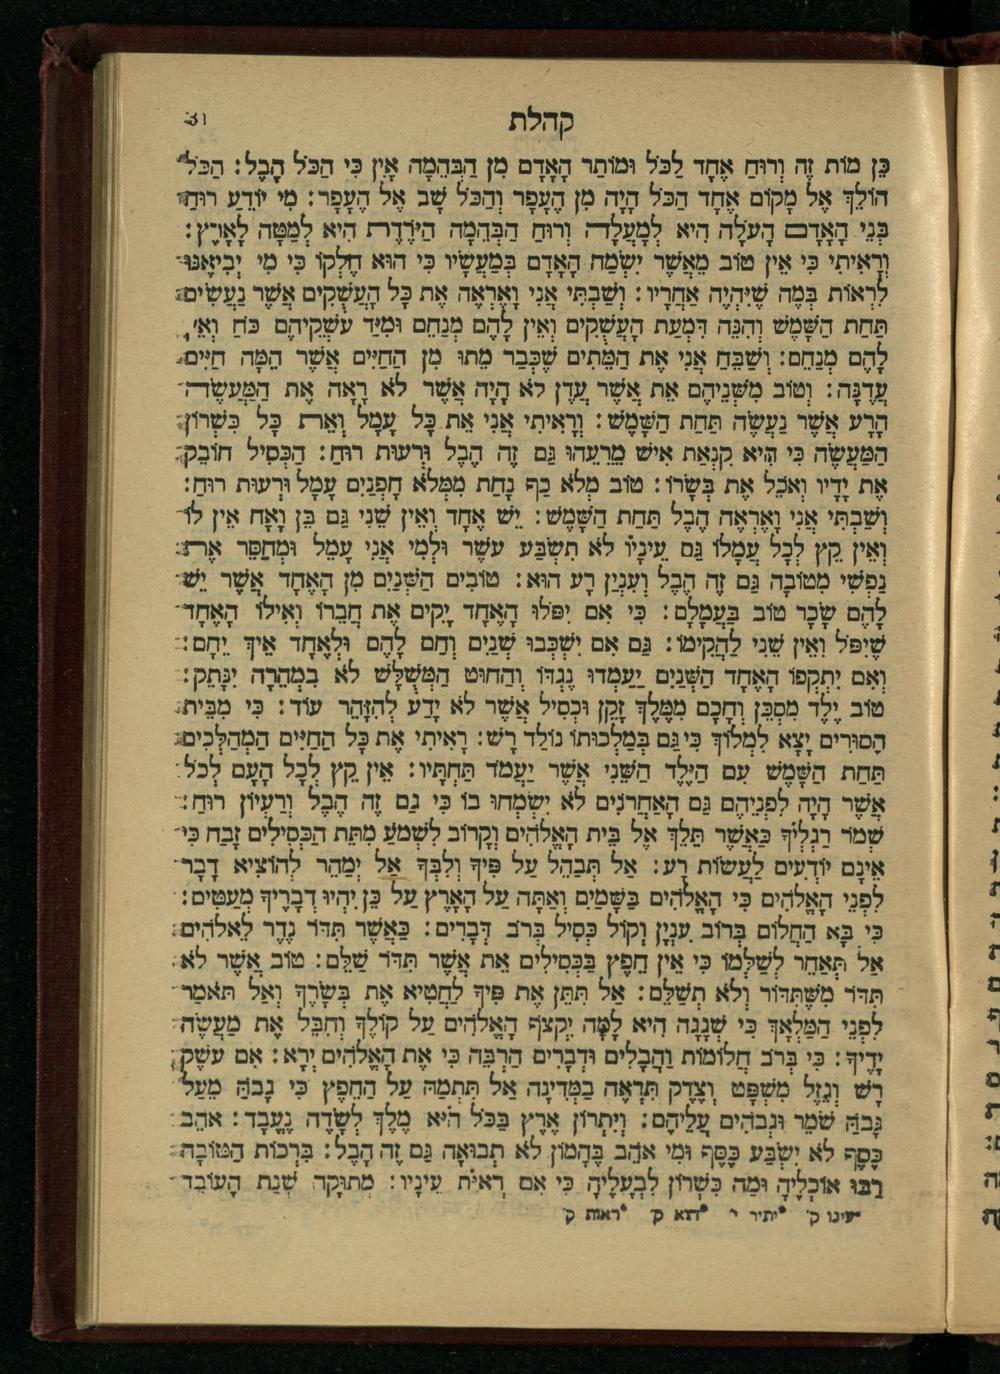 קהלת 31
כֵּן מוֹת זֶה וְרוּחַ אֶחָד לַכֹּל וּמוֹתַר הָאָדָם מִן הַבְּהֵמָה אָיִן כִּי הַכֹּל הָבֶל׃ הַכֹּל
הוֹלֵךְ אֶל מָקוֹם אֶחָד הַכֹּל הָיָה מִן הֶעָפָר וְהַכֹּל שָׁב אֶל הֶעָפָר׃ מִי יוֹדֵעַ רוּחַ
בְּנֵי הָאָדָם הָעֹלָה הִיא לְמָעְלָה וְרוּחַ הַבְּהֵמָה הַיֹּרֶדֶת הִיא לְמַטָּה לָאָרֶץ׃
וְרָאִיתִי כִּי אֵין טוֹב מֵאֲשֶׁר יִשְׂמַח הָאָדָם בְּמַעֲשָׂיו כִּי הוּא חֶלְקוֹ כִּי מִי יְבִיאֶנּוּ
לִרְאוֹת בְּמֶה שֶׁיִּהְיֶה אַחֲרָיו׃ וְשַׁבְתִּי אֲנִי וָאֶרְאֶה אֶת כָּל הָעֲשֻׁקִים אֲשֶׁר נַעֲשִׂים
תַּחַת הַשָּׁמֶשׁ וְהִנֵּה דִּמְעַת הָעֲשֻׁקִים וְאֵין לָהֶם מְנַחֵם וּמִיַּד עֹשְׁקֵיהֶם כֹּחַ וְאֵי
לָהֶם מְנַחֵם׃ וְשַׁבֵּחַ אֲנִי אֶת הַמֵּתִים שֶׁכְּבָר מֵתוּ מִן הַחַיִּים אֲשֶׁר הֵמָּה חַיִּים
עֲדֶנָּה׃ וְטוֹב מִשְּׁנֵיהֶם אֵת אֲשֶׁר עֲדֶן לֹא הָיָה אֲשֶׁר לֹא רָאָה אֶת הַמַּעֲשֶׂה
הָרָע אֲשֶׁר נַעֲשָׂה תַּחַת הַשָּׁמֶשׁ׃ וְרָאִיתִי אֲנִי אֶת כָּל עָמָל וְאֵת כָּל כִּשְׁרוֹן
הַמַּעֲשֶׂה כִּי הִיא קִנְאַת אִישׁ מֵרֵעֵהוּ גַּם זֶה הֶבֶל וּרְעוּת רוּחַ׃ הַכְּסִיל חוֹבֵק
אֶת יָדָיו וְאֹכֵל אֶת בְּשָׂרוֹ׃ טוֹב מְלֹא כַף נָחַת מִמְּלֹא חָפְנַיִם עָמָל וּרְעוּת רוּחַ׃
וְשַׁבְתִּי אֲנִי וָאֶרְאֶה הֶבֶל תַּחַת הַשָּׁמֶשׁ׃ יֵשׁ אֶחָד וְאֵין שֵׁנִי גַּם בֵּן וָאָח אֵין לוֹ
וְאֵין קֵץ לְכָל עֲמָלוֹ גַּם עֵינָיו לֹא תִשְׂבַּע עֹשֶׁר וּלְמִי אֲנִי עָמֵל וּמְחַסֵּר אֶת
נַפְשִׁי מִטּוֹבָה גַּם זֶה הֶבֶל וְעִנְיַן רָע הוּא׃ טוֹבִים הַשְּׁנַיִם מִן הָאֶחָד אֲשֶׁר יֵשׁ
לָהֶם שָׂכָר טוֹב בַּעֲמָלָם׃ כִּי אִם יִפֹּלוּ הָאֶחָד יָקִים אֶת חֲבֵרוֹ וְאִילוֹ הָאֶחָד
שֶׁיִּפֹּל וְאֵין שֵׁנִי לַהֲקִימוֹ׃ גַּם אִם יִשְׁכְּבוּ שְׁנַיִם וְחַם לָהֶם וּלְאֶחָד אֵיךְ יֵחָם׃
וְאִם יִתְקְפוֹ הָאֶחָד הַשְּׁנַיִם יַעַמְדוּ נֶגְדּוֹ וְהַחוּט הַמְשֻׁלָּשׁ לֹא בִמְהֵרָה יִנָּתֵק׃
טוֹב יֶלֶד מִסְכֵּן וְחָכָם מִמֶּלֶךְ זָקֵן וּכְסִיל אֲשֶׁר לֹא יָדַע לְהִזָּהֵר עוֹד׃ כִּי מִבֵּית
הָסוּרִים יָצָא לִמְלֹוךְ כִּי גַּם בְּמַלְכוּתוֹ נוֹלַד רָשׁ׃ רָאִיתִי אֶת כָּל הַחַיִּים הַמְהַלְּכִים
תַּחַת הַשָּׁמֶשׁ עִם הַיֶּלֶד הַשֵּׁנִי אֲשֶׁר יַעֲמֹד תַּחְתָּיו׃ אֵין קֵץ לְכָל הָעָם לְכֹל
אֲשֶׁר הָיָה לִפְנֵיהֶם גַּם הָאַחֲרֹנִים לֹא יִשְׂמְחוּ בוֹ כִּי גַם זֶה הֶבֶל וְרַעְיוֹן רוּחַ׃
שְׁמֹר רַגְלְיךָ כַּאֲשֶׁר תֵּלֵךְ אֶל בֵּית הָאֱלֹהִים וְקָרוֹב לִשְׁמֹעַ מִתֵּת הַכְּסִילִים זָבַח כִּי
אֵינָם יוֹדְעִים לַעֲשׂוֹת רָע׃ אַל תְּבַהֵל עַל פִּיךָ וְלִבְּךָ אַל יְמַהֵר לְהוֹצִיא דָבָר
לִפְנֵי הָאֱלֹהִים כִּי הָאֱלֹהִים בַּשָּׁמַיִם וְאַתָּה עַל הָאָרֶץ עַל כֵּן יִהְיוּ דְבָרֶיךָ מְעַטִּים׃
כִּי בָּא הַחֲלוֹם בְּרוֹב עִנְיָן וְקוֹל כְּסִיל בְּרֹב דְּבָרִים׃ כַּאֲשֶׁר תִּדֹּר נֶדֶר לֵאלֹהִים
אַל תְּאַחֵר לְשַׁלְּמוֹ כִּי אֵין חֵפֶץ בַּכְּסִילִים אֵת אֲשֶׁר תִּדֹּר שַׁלֵּם׃ טוֹב אֲשֶׁר לֹא
תִדֹּר מִשֶּׁתִּדּוֹר וְלֹא תְשַׁלֵּם׃ אַל תִּתֵּן אֶת פִּיךָ לַחֲטִיא אֶת בְּשָׂרֶךָ וְאַל תֹּאמַר
לִפְנֵי הַמַּלְאָךְ כִּי שְׁגָגָה הִיא לָמָּה יִקְצֹף הָאֱלֹהִים עַל קוֹלֶךָ וְחִבֵּל אֶת מַעֲשֵׂה
יָדֶיךָ׃ כִּי בְרֹב חֲלֹמוֹת וַהֲבָלִים וּדְבָרִים הַרְבֵּה כִּי אֶת הָאֱלֹהִים יְרָא׃ אִם עֹשֶׁק
רָשׁ וְגֵזֶל מִשְׁפָּט וָצֶדֶק תִּרְאֶה בַמְּדִינָה אַל תִּתְמַהּ עַל הַחֵפֶץ כִּי גָבֹהַּ מֵעַל
גָּבֹהַּ שֹׁמֵר וּגְבֹהִים עֲלֵיהֶם׃ וְיִתְרוֹן אֶרֶץ בַּכֹּל הִיא מֶלֶךְ לְשָׂדֶה נֶעֱבָד׃ אֹהֵב
כֶּסֶף לֹא יִשְׂבַּע כֶּסֶף וּמִי אֹהֵב בֶּהָמוֹן לֹא תְבוּאָה גַּם זֶה הָבֶל׃ בִּרְבוֹת הַטּוֹבָה
רַבּוּ אוֹכְלֶיהָ וּמַה כִּשְׁרוֹן לִבְעָלֶיהָ כִּי אִם רְאִיֹּת עֵינָיו׃ מְתוּקָה שְׁנַת הָעוֹבֵד
עינו ק׳ יתיר י׳ הוא ק׳ ראות ק׳